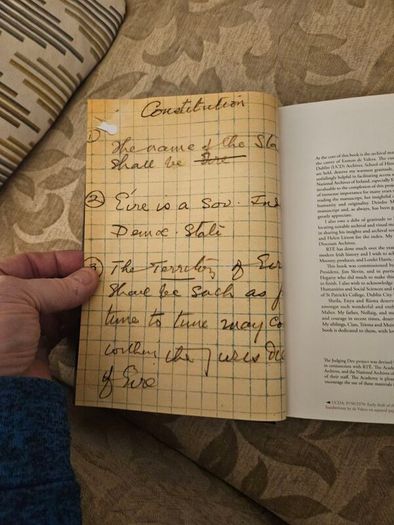 Constitution
1) The name of the Sta
shall be Éire
2 Éire is a Sov. Ind
Democ. State
3 The Territory of Eir
shall be such as f
time to time may co
within the juris dic
of Éire
As the cost of this book is the archival
the career of Eamon de Valera. The
Dublin (UCD) Archives, School of His
are held, deserve my warmest gratitude
unfailingly helpful in facilitating access
National Archives of Ireland, especially
invaluable to the completion of this pro
of numerous importance for many years
reading the manuscript, her insightful
humanity and originality. Deirdre M
manuscript and, as always, has been g
greatly appreciate.
I also owe a debt of gratitude to
locating suitable archival and visual
in sharing his insights and archival
and Helen Litton for the index. My
Diocesan Archives.
RTÉ has done much over the years
modern Irish history and I wish to
Mooney, products, and Lorelei Harris,
This book was commissioned by
President, Jim Slevin, and in partic
Hegarty who did much to make this
to finish. I also wish to acknowledge
Humanities and Social Sciences and
of St Patrick's College, Dublin City
Sheila, Enya and Ríona deserve
amongst such wonderful and
Maher. My father, Nollaig, and
and courage in recent times,
My siblings, Cian, Tereza and Muireann
book is dedicated to them, with
The Judging Dev project was devised
in conjunction with RTÉ, The
Archives, and the National Archives
of their staff. The Academy is pleased
encourage the use of these materials
◄ UCDA, P150/2370: Early draft of
handwritten by de Valera on squared paper